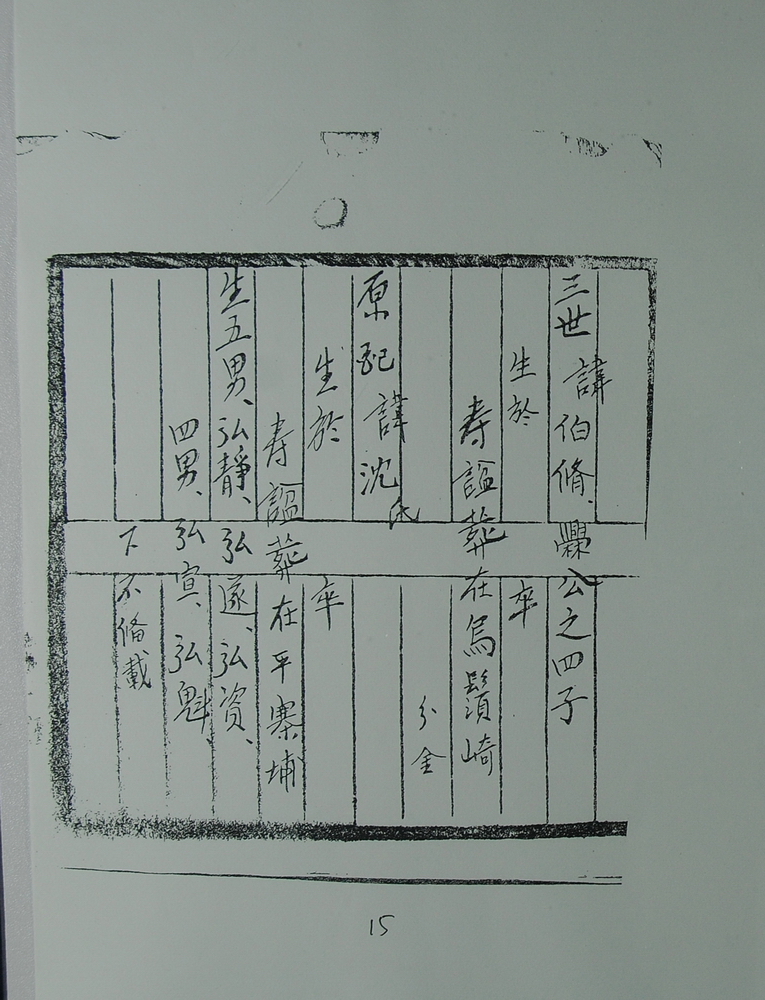 三世 諱伯脩、釁公之四子
生於 卒
寿 諡 葬在烏鬚崎
分金
原配 諱沈氏
生於 卒
寿 諡 葬在平寨埔
生五男、弘靜、弘遂、弘资、
四男、弘宣、弘魁、
下不俻載
15